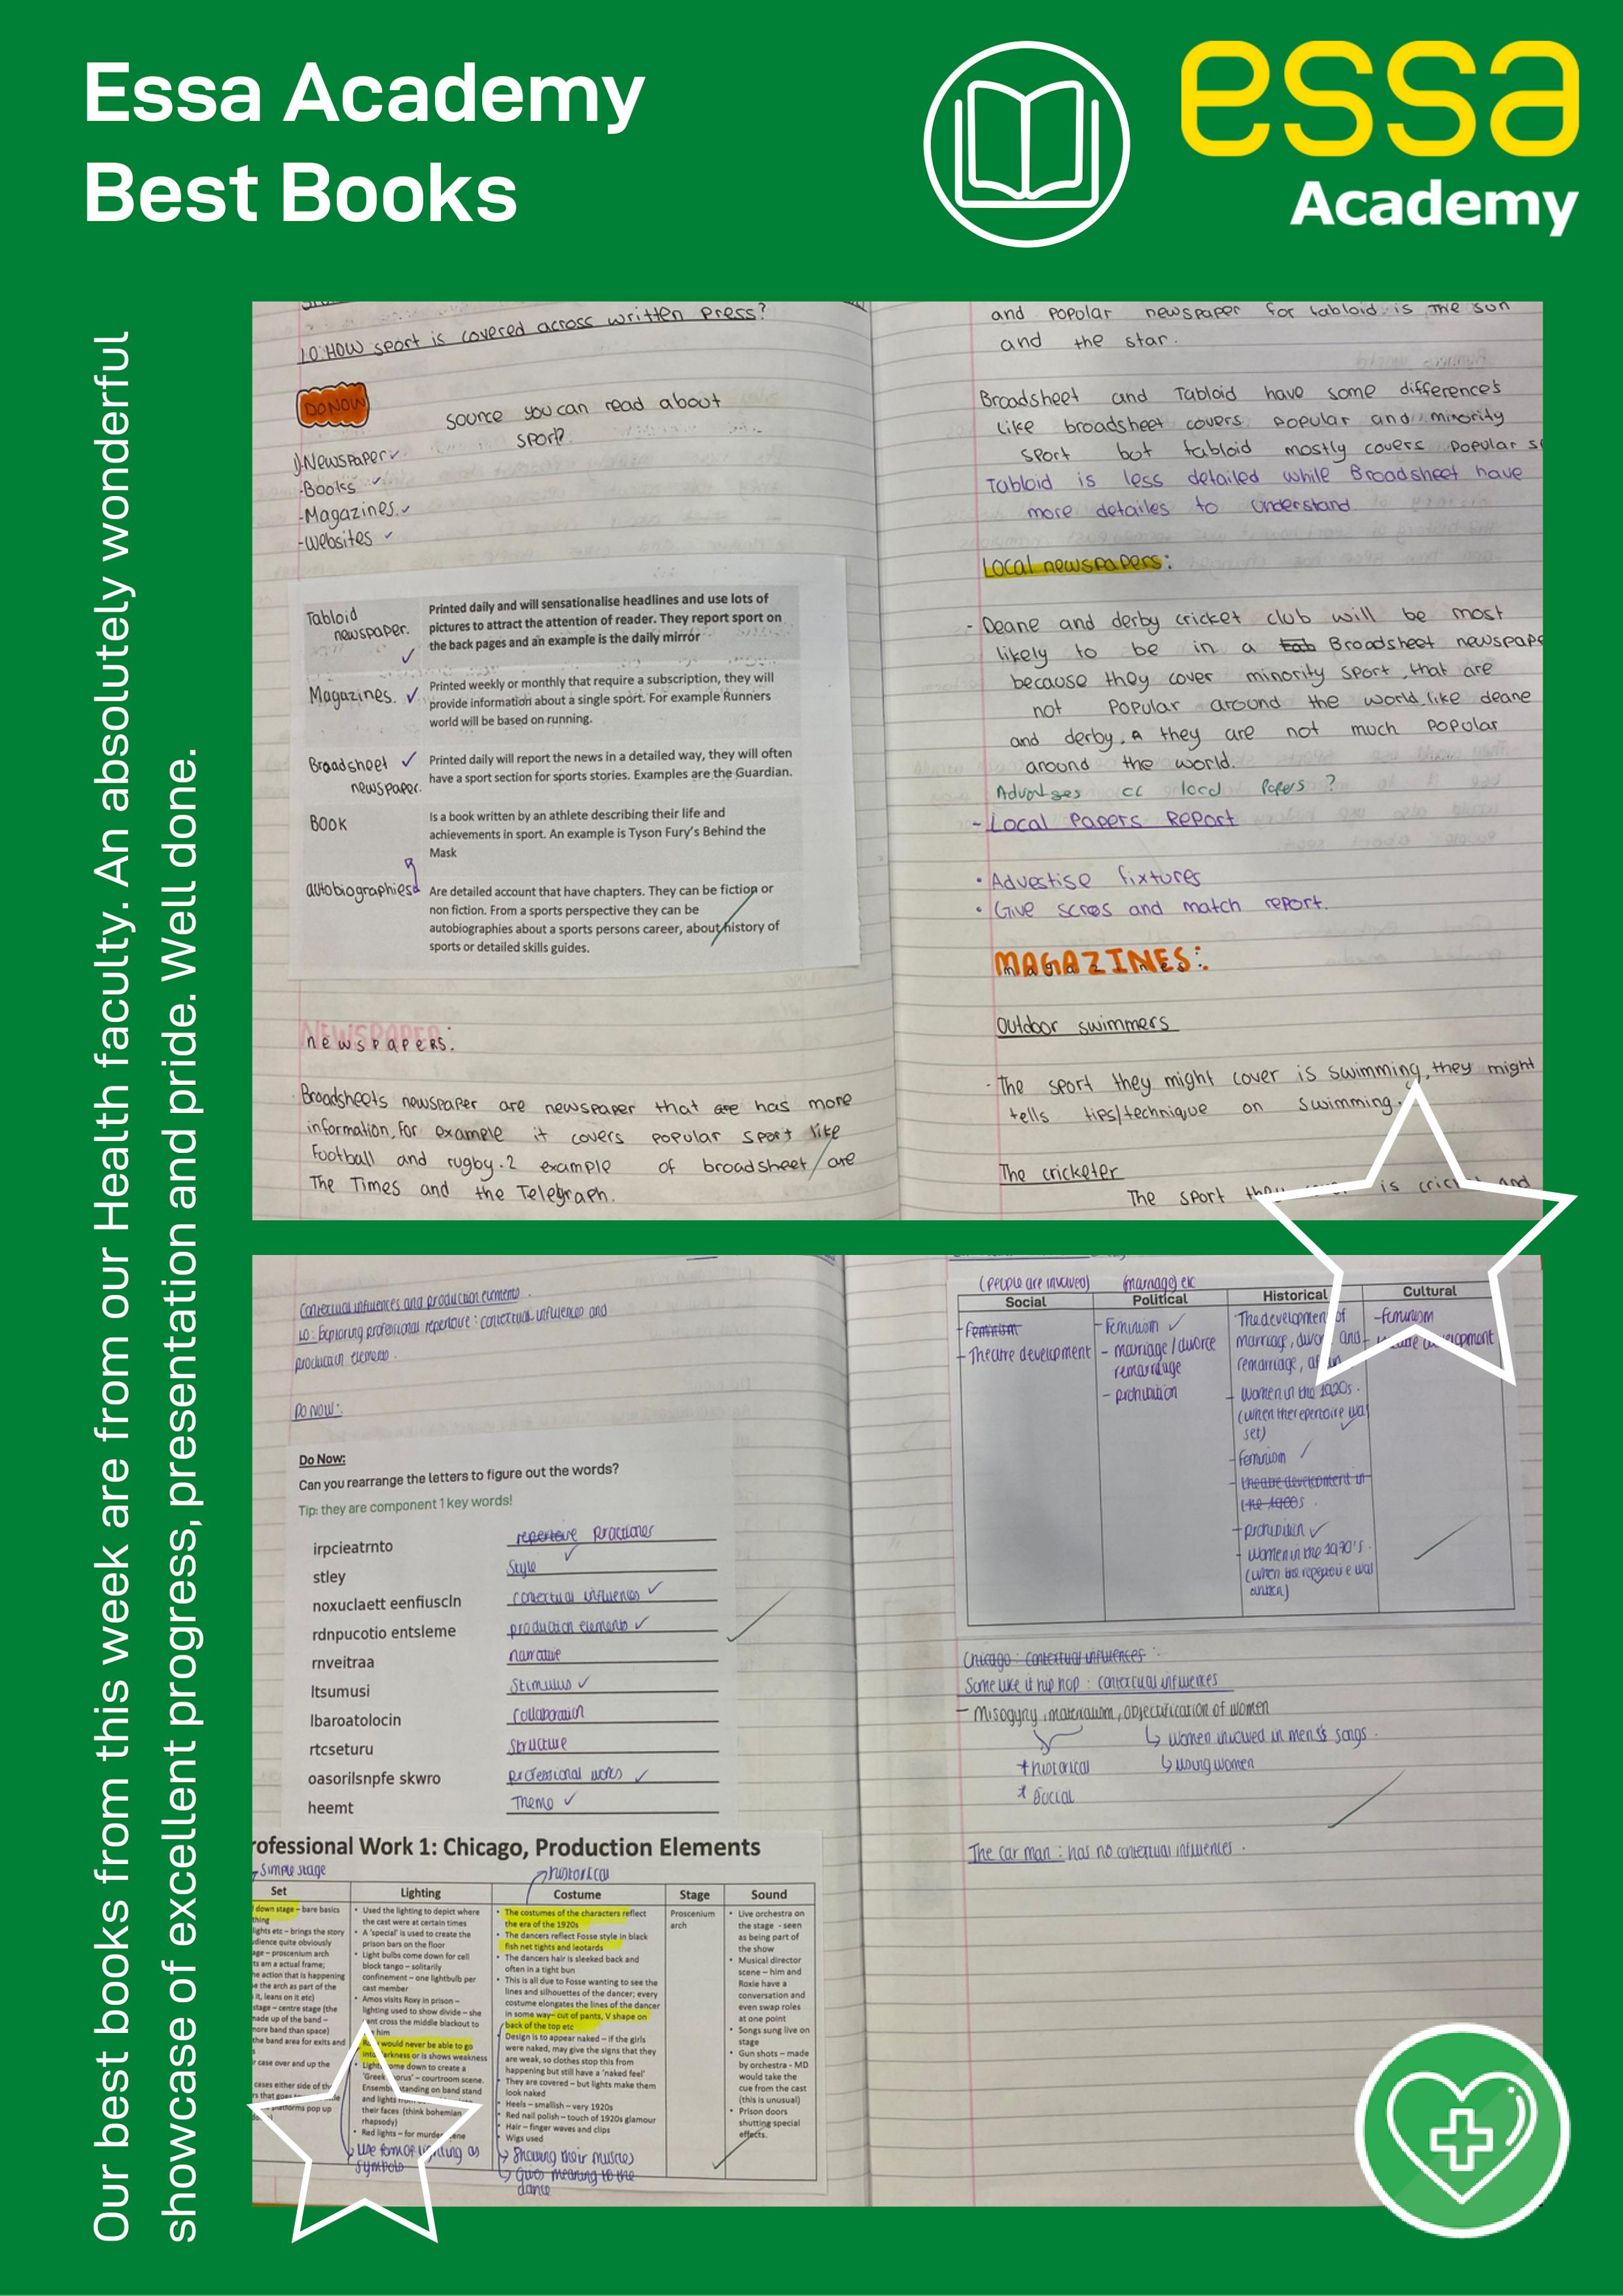 Essa Academy
Best Books
essa
Academy
Our best books from this week are from our Health faculty. An absolutely wonderful
showcase of excellent progress, presentation and pride. Well done.
LO: HOW sport is covered across written press?
DO NOW
source you can read about
sport?
1) Newspaper
-Books
-Magazines.
-websites
Tabloid
newspaper.
Printed daily and will sensationalise headlines and use lots of
pictures to attract the attention of reader. They report sport on
the back pages and an example is the daily mirror
Magazines.
Printed weekly or monthly that require a subscription, they will
provide information about a single sport. For example Runners
world will be based on running.
Broadsheet
newspaper.
Printed daily will report the news in a detailed way, they will often
have a sport section for sports stories. Examples are the Guardian.
BOOK
Is a book written by an athlete describing their life and
achievements in sport. An example is Tyson Fury's Behind the
Mask
autobiographies
Are detailed account that have chapters. They can be fiction or
non fiction. From a sports perspective they can be
autobiographies about a sports persons career, about history of
sports or detailed skills guides.
NEWSPAPER:
newspapers:
Broadsheets newspaper are newspaper that are has more
information, for example it covers popular sport like
Football and rugby. 2 example of broadsheet are
The Times and the Telegraph.
and popular newspaper for tabloid is The sun
and the star.
Broadsheet and Tabloid have some difference's
like broadsheet covers popular and minority
sport but tabloid mostly covers popular
Tabloid is less detailed while Broadsheet have
more detailes to understand.
Local newspapers:
- Deane and derby cricket club will be most
likely to be in a Broadsheet
because they cover minority sport, that are
not popular around the world, like deane
and derby. they are not much popular
around the world.
local Papers?
- Local Papers Report
• Advestise fixtures
• Give scres and match report.
MAGAZINES:
magazines
Outdoor swimmers
- The sport they might cover is swimming, they might
tells tips/technique on swimming.
The cricketer
The sport they is and
Contextual influences and production elements.
LO: Exploring professional repertoire: contextual influences and
production elements.
DO NOW:
Do Now:
Can you rearrange the letters to figure out the words?
Tip: they are component 1 key words!
irpcieatrnto repertoire Practioner
stley Style
noxuclaett eenfiuscln contextual influences
rdnpucotio entsleme production elements
rnveitraa narrative
ltsumusi Stimulus
lbaroatolocin collaboration
rtcseturu structure
oasorilsnpfe skwro professional works
heemt Theme
rofessional Work 1: Chicago, Production Elements
Simple stage
historical
Set
down stage – bare basics
thing
lights etc – brings the story
dience quite obviously
age – proscenium arch
ts am a actual frame;
he action that is happening
e the arch as part of the
it, leans on it etc)
stage – centre stage (the
made up of the band –
more band than space)
the band area for exits and
s
r case over and up the
cases either side of the
platforms pop up
Lighting
• Used the lighting to depict where
the cast were at certain times
• A 'special' is used to create the
prison bars on the floor
• Light bulbs come down for cell
block tango – solitarily
confinement – one lightbulb per
cast member
• Amos visits Roxy in prison –
lighting used to show divide – she
cant cross the middle blackout to
him
would never be able to go
into darkness or is shows weakness
• Lights come down to create a
'Greek chorus' – courtroom scene.
Ensemble standing on band stand
and lights
their faces (think bohemian
rhapsody)
• Red lights – for murder scene
use form of lighting as
symbols
Costume
• The costumes of the characters reflect
the era of the 1920s
• The dancers reflect Fosse style in black
fish net tights and leotards
• The dancers hair is sleeked back and
often in a tight bun
• This is all due to Fosse wanting to see the
lines and silhouettes of the dancer; every
costume elongates the lines of the dancer
in some way– cut of pants, V shape on
back of the top etc
• Design is to appear naked – if the girls
were naked, may give the signs that they
are weak, so clothes stop this from
happening but still have a 'naked feel'
• They are covered – but lights make them
look naked
• Heels – smallish – very 1920s
• Red nail polish – touch of 1920s glamour
• Hair – finger waves and clips
• Wigs used
Showing their muscles
Gives meaning to the
dance
Stage
Proscenium
arch
Sound
• Live orchestra on
the stage - seen
as being part of
the show
• Musical director
scene – him and
Roxie have a
conversation and
even swap roles
at one point
• Songs sung live on
stage
• Gun shots – made
by orchestra - MD
would take the
cue from the cast
(this is unusual)
• Prison doors
shutting special
effects.
(people are involved) (marriage) etc
Social
- Feminism
- Theatre development
Political
- Feminism
- marriage/divorce
remarriage
- prohibition
Historical
- The development of
marriage, divorce and
remarriage,
- women in the 1920s.
(when the repertoire was
set)
- Feminism
- theatre development in
the 1900s.
- prohibition
- women in the 1970's.
(when the repertoire was
written)
Cultural
- feminism
- theatre development
Chicago: contextual influences:
Some like it hip hop: contextual influences
- Misogyny, materialism, objectification of women
* historical
* social
↳ women involved in men's songs.
↳ using women
The car man: has no contextual influences.